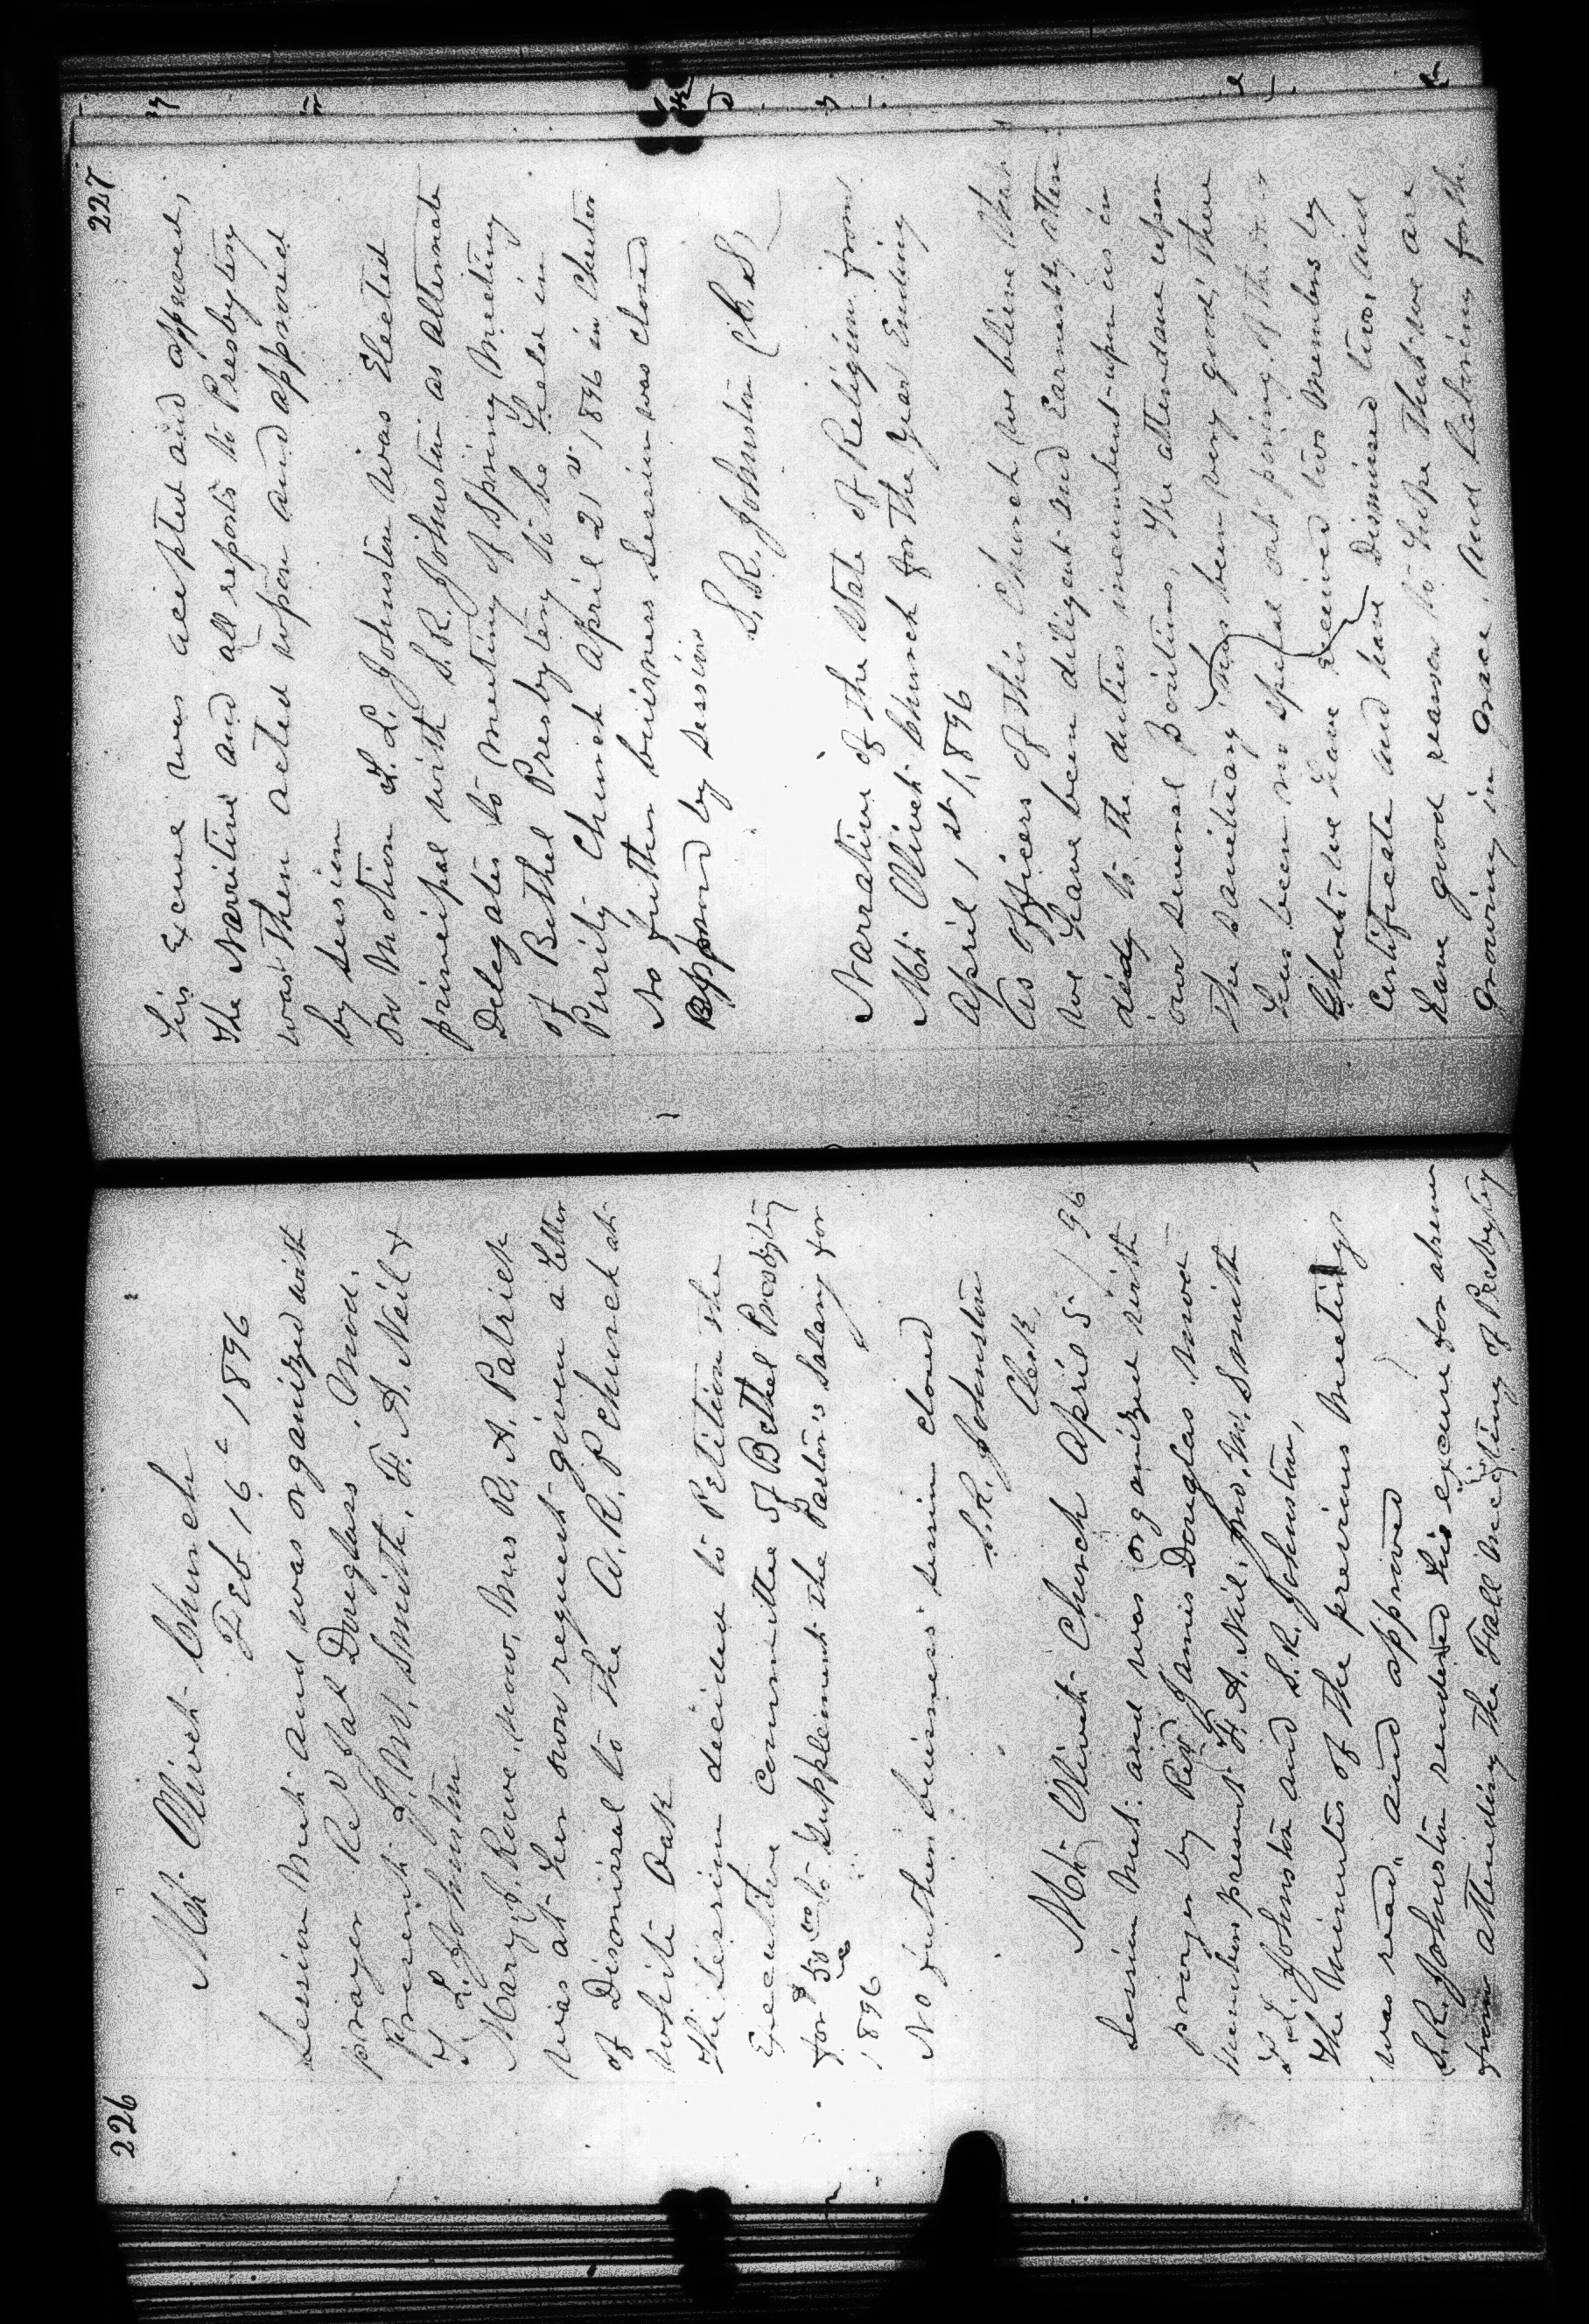 226
Mt. Olivet Church
Feb 16 1896
Session Met and was organized with
prayer Rev Jas Douglass. Mod.
Present J. W. Smith, F. A. Neil &
T. L. Johnston
Mary J. Rowe, now, Mrs R. A. Patrick
was at her own request given a Letter
of Dismissal to the A. R. P Church at
White Oak
The Session decided to Petition the
Executive Committee of Bethel Presbytery
for $50.00 to Supplement the Pastor's Salary for
1896
No further business session closed
S. R. Johnston
Clerk,
Mt. Olivet Church April 5 / 96
Session Met. and was organized with
prayer by Rev James Douglas Mod
Members present F. A. Neil, Jno. M. Smith
T. L. Johnston and S. R. Johnston,
The Minutes of the previous Meetings
was read, and approved
S. R. Johnston rendered his excuse for absence
from attending the Fall Meeting of Presbytery
227
his Excuse was accepted and approved,
The Narritive and all reports to Presbytery
was then acted upon and approved
by session
On Motion T. L. Johnston was Elected
principal with S. R. Johnston as alternate
Delegates to Meeting of Spring Meeting
of Bethel Presbytery to be held in
Purity Church April 21st 1896 in Chester
No further business Session was closed
Approved by session
S. R. Johnston C.S.
Narrative of the State of Religion from
Mt. Olivet Church for The year Ending
April 1st 1896
As officers of this Church we believe that
we have been diligent and Earnestly atten
dedy to the duties incumbent upon us in
our several Positions, The attendance upon
the sanctuary has been very good, there
has been no special out poring of the
Ghost. we have received two members by
Certificate and have Dismissed two, and
have good reason to hope that we are
growing in grace and laboring for the